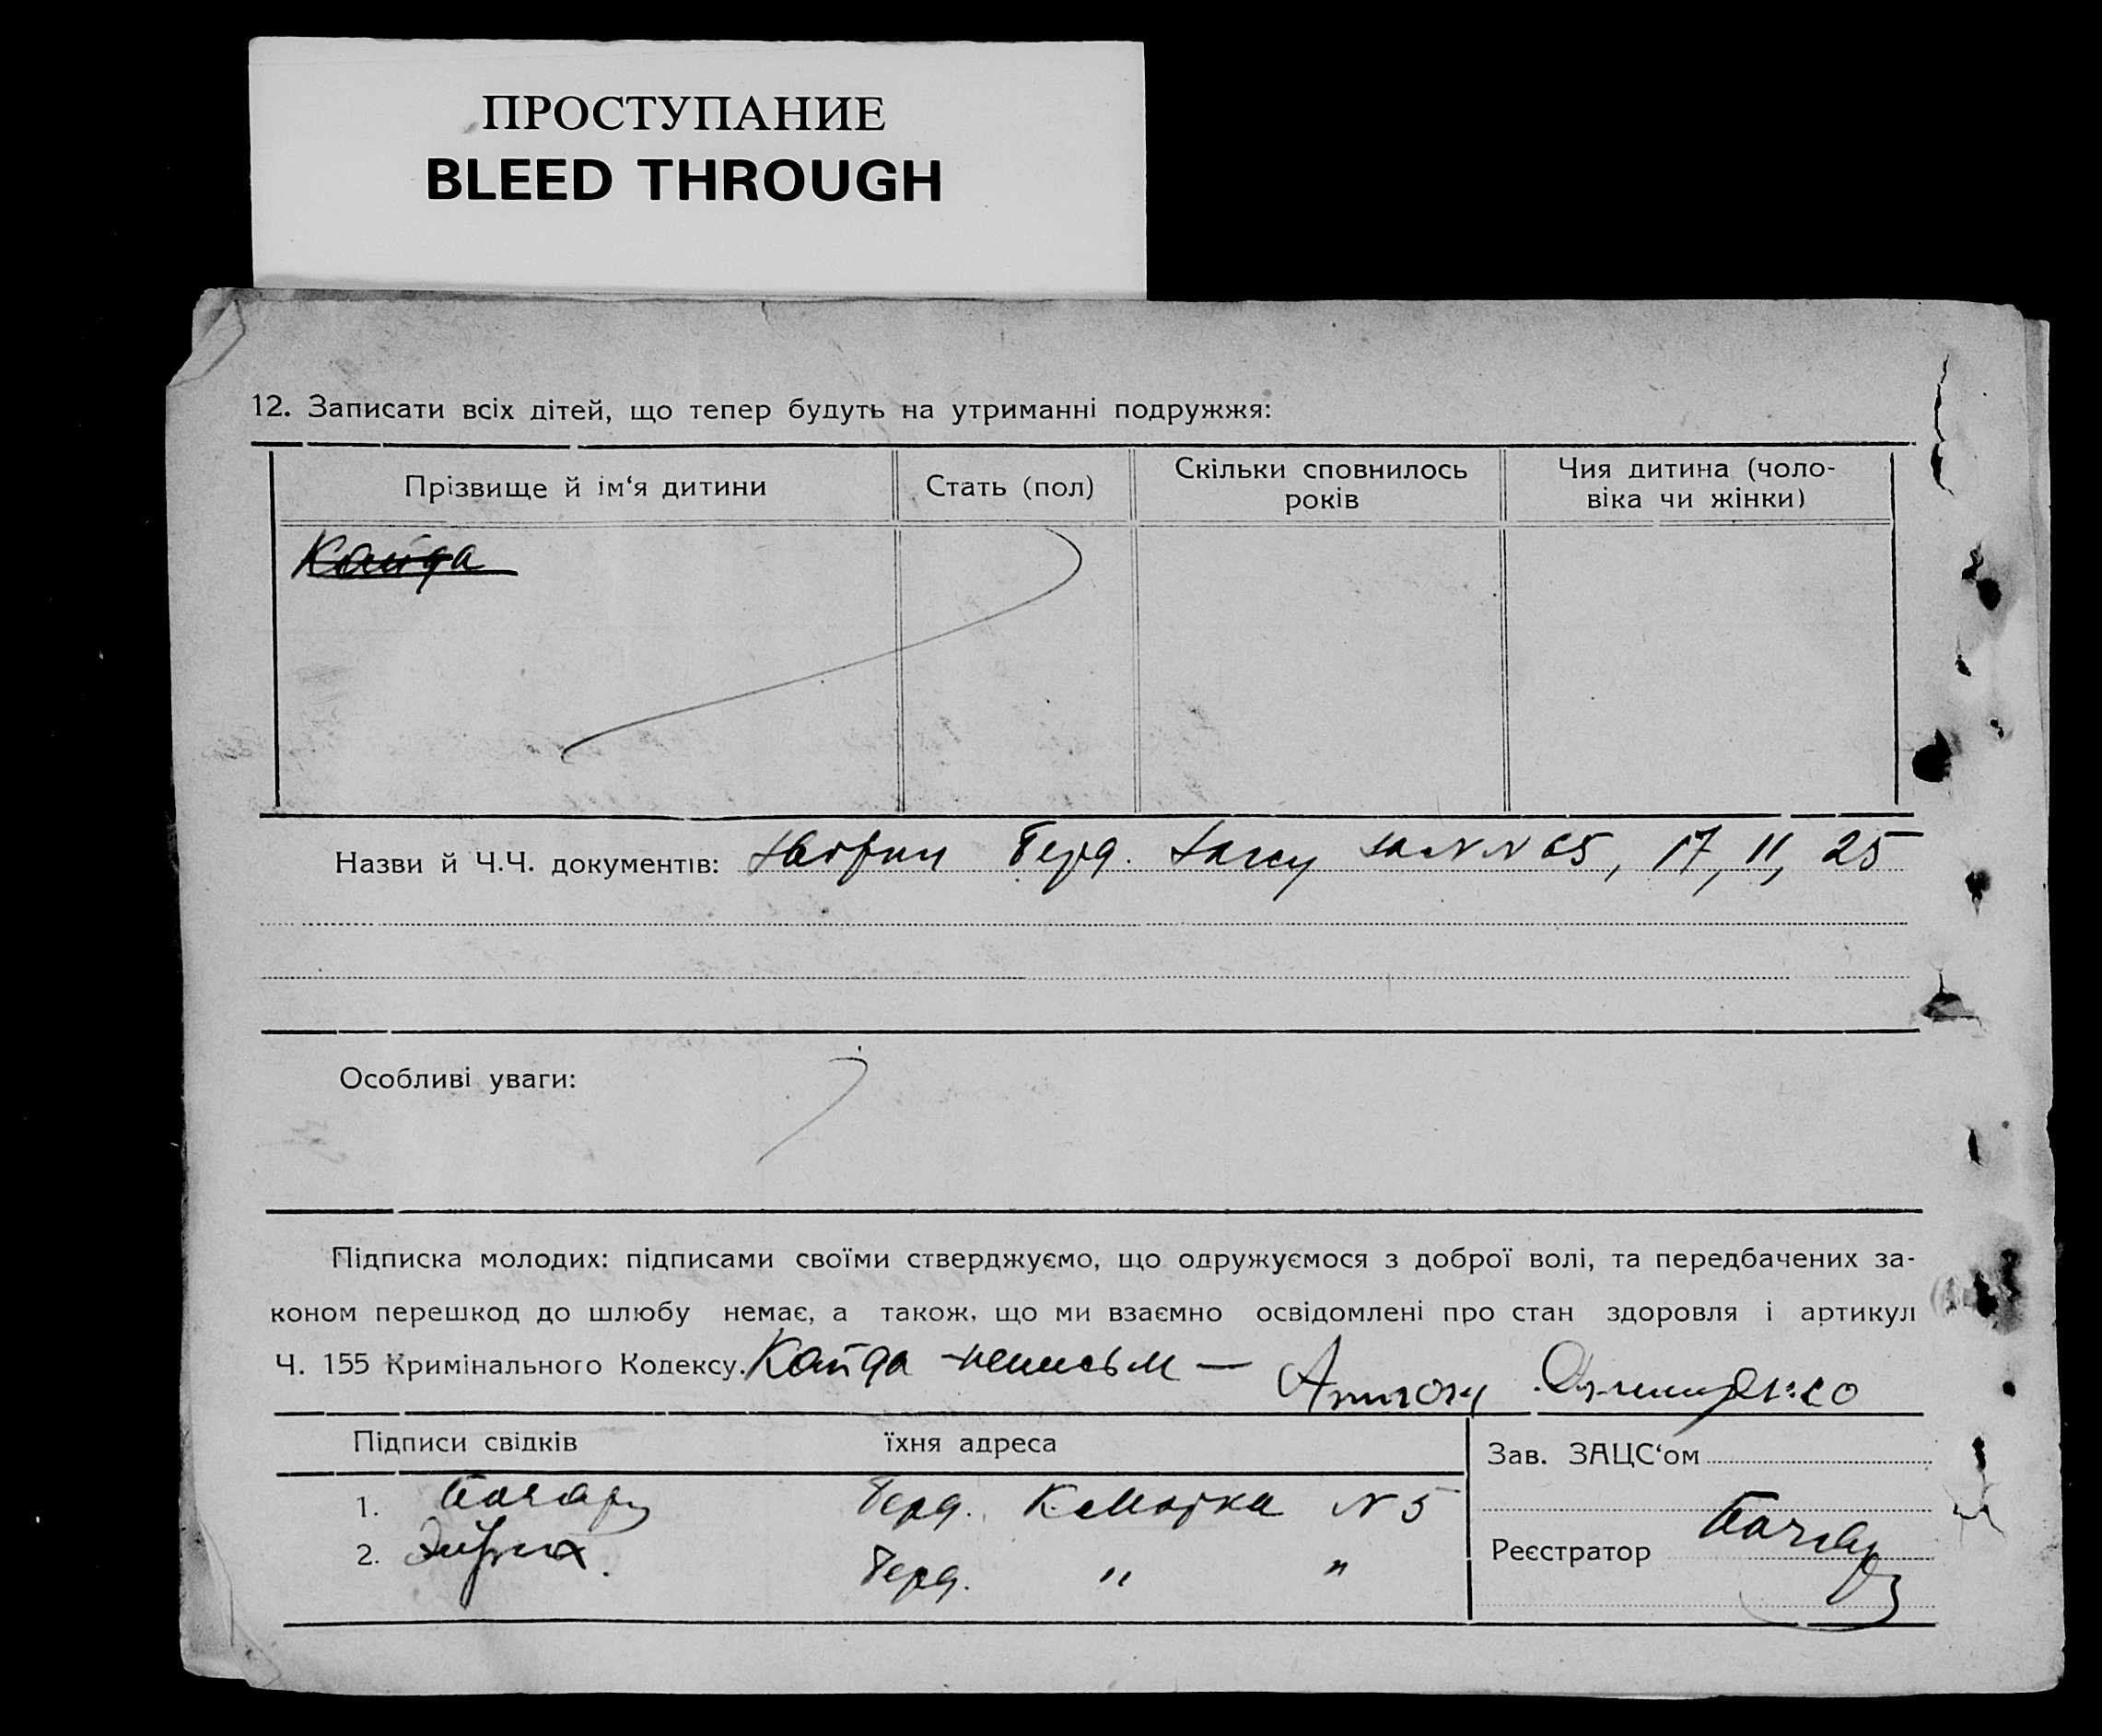 ПРОСТУПАНИЕ
BLEED THROUGH
12. Записати всіх дітей, що тепер будуть на утриманні подружжя:
Прізвище й ім‘я дитини Стать (пол) Скільки сповнилось років Чия дитина (чоло-віка чи жінки)
Кайда
Назви й Ч.Ч. документів: Берд. Загсу за №№ 65, 17, 11, 25
Особливі уваги:
Підписка молодих: підписами своїми стверджуємо, що одружуємося з доброї волі, та передбачених за-
коном перешкод до шлюбу немає, а також, що ми взаємно освідомлені про стан здоровля і артикул
Ч. 155 Кримінального Кодексу. Кайда неписьм — Антон
Підписи свідків їхня адреса Зав. ЗАЦС‘ом
1. Берд. К. Маркса № 5
2. Берд. " "
Реєстратор